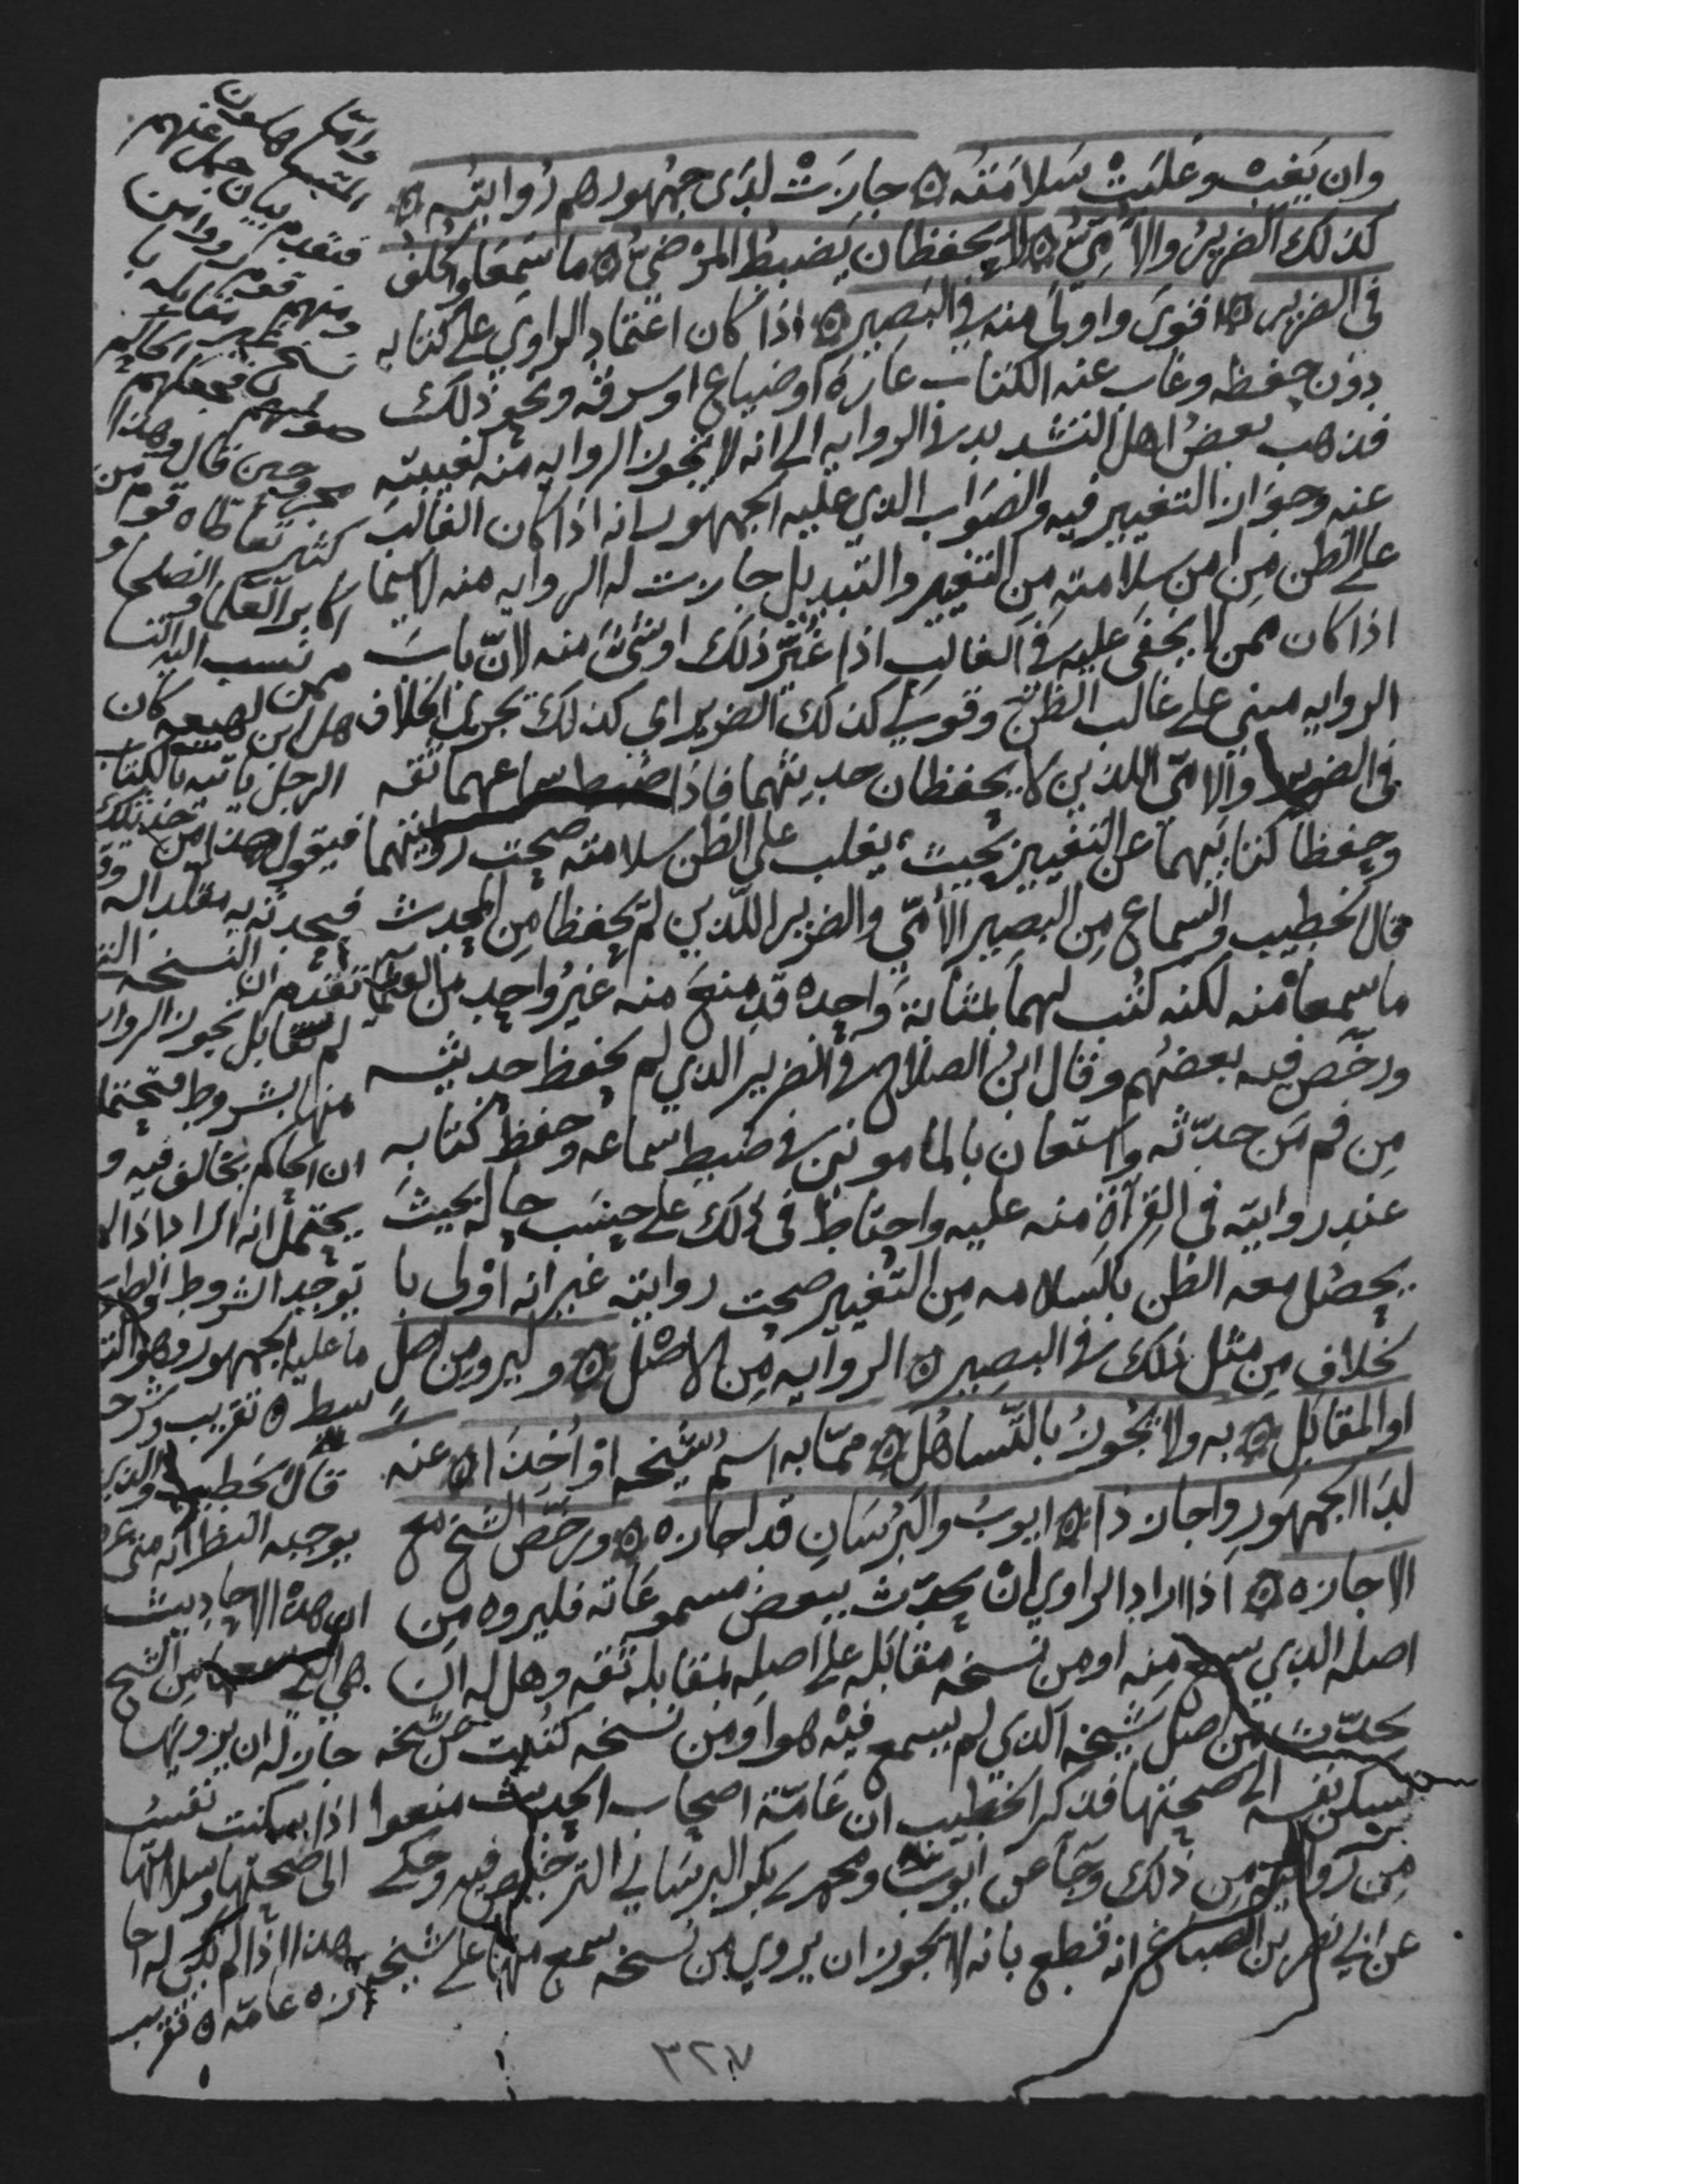 وان يغب وغلبت سلامته ۞ جازت لدى جمهورهم روايته ۞
كذلك الضرير والأمي ۞ لا يحفظان يضبط المرضي ۞ ما سمعا والخلف
في الضرير ۞ اقوى واولى منه في البصير ۞ اذا كان اعتماد الراوي على كتابه
دون حفظه وغاب عنه الكتاب عارة او ضياع او سرقه ونحو ذلك
فذهب بعض اهل التشديد في الروايه الى انه لا تجوز الروايه منه لغيبته
عنه وجواز التغيير فيه والصواب الذي عليه الجمهور انه اذا كان الغالب
على الظن من امن سلامته من التغيير والتبديل جازت له الروايه منه لاسيما
اذا كان ممن لا يخفى عليه في الغالب اذا غير ذلك او شئ منه لان باب
الروايه مبني على غالب الظن وقولي كذلك الضرير اي كذلك يجري الخلاف
في الضرير والامي اللذين لا يحفظان حديثهما فاذا ضبط سماعهما ثقه
وحفظا كتابيهما عن التغيير بحيث يغلب على الظن سلامته صحت روايتهما
قال الخطيب والسماع من البصير الأمي والضرير اللذين لم يحفظا من المحدث
ما سمعاه منه لكنه كتب لهما بمثابة واحده قد منع منه غير واحد من العلما
ورخص فيه بعضهم وقال ابن الصلاح في الضرير الذي لم يحفظ حديثه
من فم من حدثه واستعان بالمامونين في ضبط سماعه وحفظ كتابه
عند روايته في القراة منه عليه واحتاط في ذلك على حسب حاله بحيث
يحصل معه الظن بالسلامه من التغيير صحت روايته غير انه اولى با
لخلاف من مثل ذلك في البصير ۞ الروايه من الاصل ۞ وليرو من اصل
او المقابل ۞ به ولا يجوز بالتساهل ۞ مما به اسم شيخه او اخذا ۞ عنه
لدا الجمهور واجاز ذا ۞ ايوب والبرسان قد اجازه ۞ ورخص الشيخ مع
الاجازه ۞ اذا اراد الراوي ان يحدث ببعض مسموعاته فليروه من
اصله الذي سمع منه او من نسخه مقابله على اصله بمقابله ثقه وهل له ان
يحدث من اصل شيخه الذي لم يسمع فيه هو او من نسخه كتبت عن شيخه
تسكن نفسه الى صحتها فذكر الخطيب ان عامة اصحاب الحديث منعوا
من روايته من ذلك وجا عن ايوب ومحمد بن بكر البرساني الترخيص فيه وحكى
عن ابي نصر بن الصباغ انه قطع بانه لا يجوز ان يروي من نسخه سمع منها على شيخه
واما
المتساهلون
فتقدم بيان جمل عنهم
ومنهم قوم رووا من
نسخ غير مقابله با
صولهم فجعلهم الحاكم
مجروحين قال وهذا
كثير تعاطاه قوم من
اكابر العلما والصلحا و
ممن نسب اليه التسا
هل ابن لهيعه كان
الرجل ياتيه بالكتاب
فيقول هذا من حديثك
فيحدثه به مقلدا له وقد
تقدم ان النسخه التي
لم تقابل تجوز الروايه
منها بشروط فيحتمل
ان الحاكم يخالف فيه و
يحتمل انه اراد اذا لم
توجد الشروط والصواب
ما عليه الجمهور وهو التو
سط ۞ تقريب وشرحه
قال الخطيب والذي
يوجبه النظر انه متى عرف
ان هذه الاحاديث
هي التي سمعها من الشيخ
جاز له ان يرويها
اذا سكنت نفسه
الى صحتها وسلامتها
هذا اذا لم يكن له اجا
زه عامه ۞ تقريب
٣٢٧